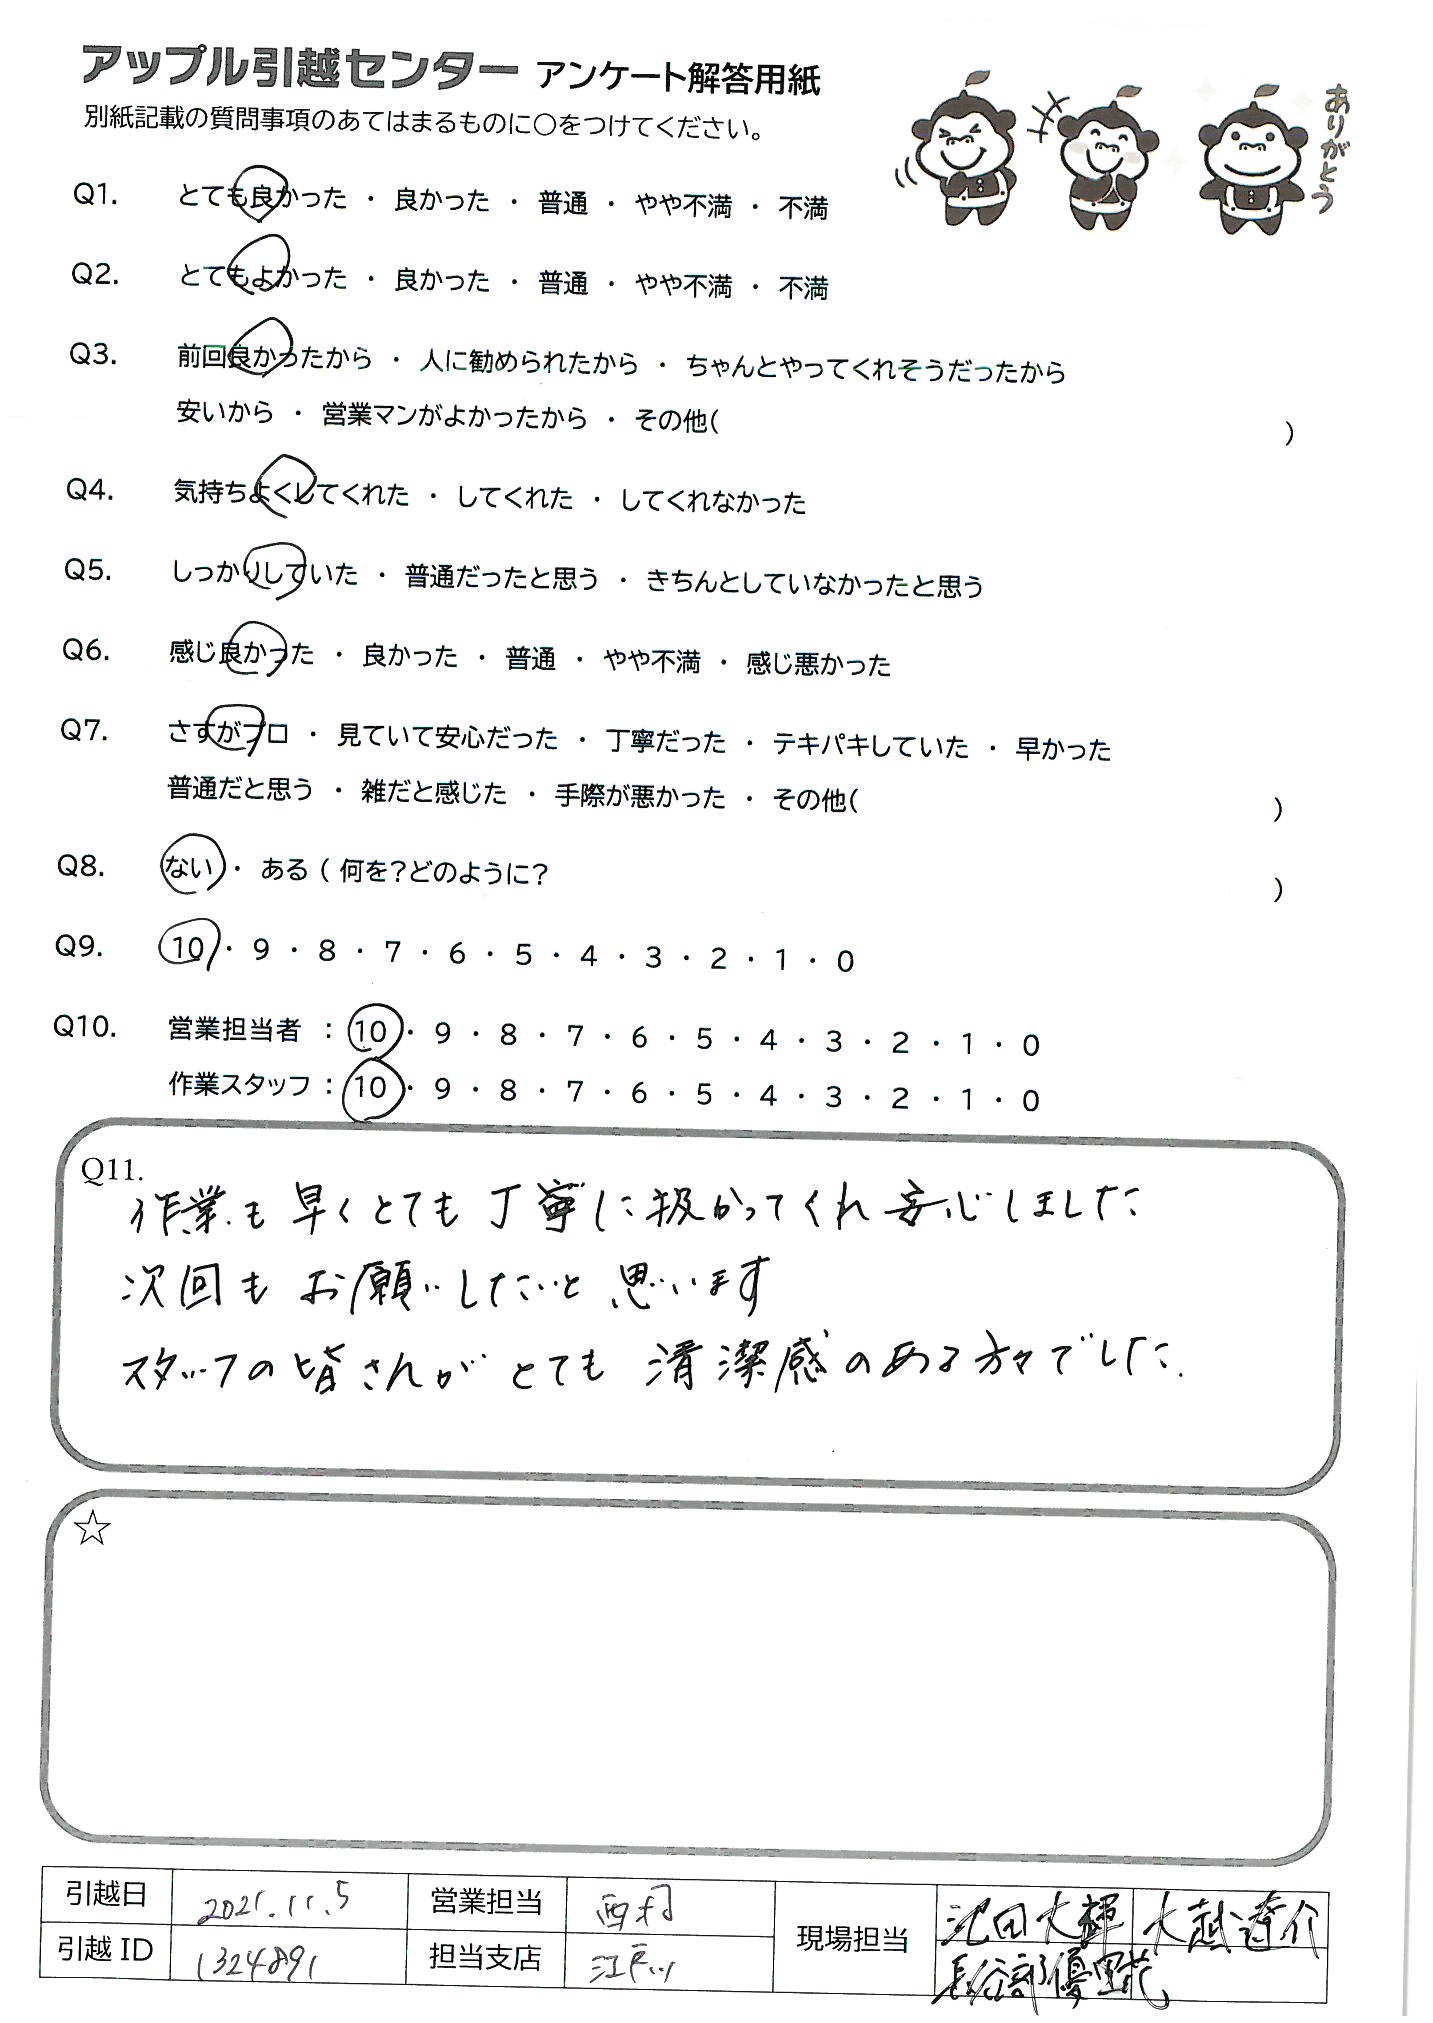 アップル引越センター アンケート解答用紙
別紙記載の質問事項のあてはまるものに〇をつけてください。
ありがとう
Q1. とても良かった ・ 良かった ・ 普通 ・ やや不満 ・ 不満
Q2. とてもよかった ・ 良かった ・ 普通 ・ やや不満 ・ 不満
Q3. 前回良かったから ・ 人に勧められたから ・ ちゃんとやってくれそうだったから
安いから ・ 営業マンがよかったから ・ その他( )
Q4. 気持ちよくしてくれた ・ してくれた ・ してくれなかった
Q5. しっかりしていた ・ 普通だったと思う ・ きちんとしていなかったと思う
Q6. 感じ良かった ・ 良かった ・ 普通 ・ やや不満 ・ 感じ悪かった
Q7. さすがプロ ・ 見ていて安心だった ・ 丁寧だった ・ テキパキしていた ・ 早かった
普通だと思う ・ 雑だと感じた ・ 手際が悪かった ・ その他( )
Q8. ない ・ ある ( 何を?どのように? )
Q9. 10 ・ 9 ・ 8 ・ 7 ・ 6 ・ 5 ・ 4 ・ 3 ・ 2 ・ 1 ・ 0
Q10. 営業担当者 : 10 ・ 9 ・ 8 ・ 7 ・ 6 ・ 5 ・ 4 ・ 3 ・ 2 ・ 1 ・ 0
作業スタッフ : 10 ・ 9 ・ 8 ・ 7 ・ 6 ・ 5 ・ 4 ・ 3 ・ 2 ・ 1 ・ 0
Q11.
作業も早くとても丁寧に扱かってくれ安心しました
次回もお願いしたいと思います
スタッフの皆さんがとても清潔感のある方々でした.
☆
引越日 2021.11.5 営業担当 西村 現場担当 池田大輝 大越達介
引越 ID 1324891 担当支店 江戸川 長谷部優